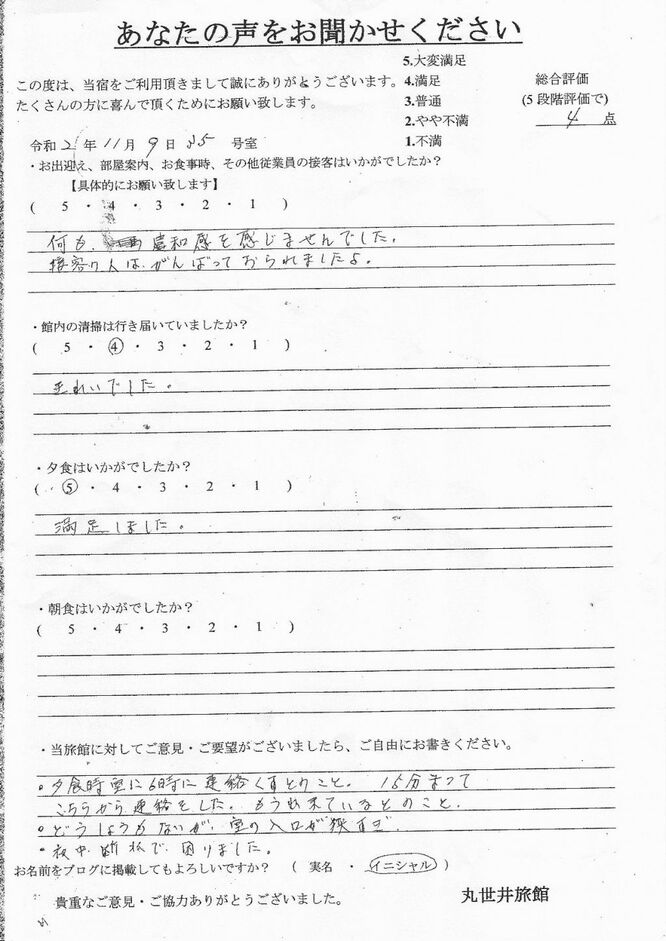 あなたの声をお聞かせください
この度は、当宿をご利用頂きまして誠にありがとうございます。
たくさんの方に喜んで頂くためにお願い致します。
5.大変満足
4.満足
3.普通
2.やや不満
1.不満
総合評価
(5段階評価で)
4 点
令和 2 年 11 月 9 日 号室
・お出迎え、部屋案内、お食事時、その他従業員の接客はいかがでしたか?
【具体的にお願い致します】
( 5 ・ 4 ・ 3 ・ 2 ・ 1 )
何も、違和感を感じませんでした。
接客の人は、がんばっておられましたよ。
・館内の清掃は行き届いていましたか?
( 5 ・ 4 ・ 3 ・ 2 ・ 1 )
きれいでした。
・夕食はいかがでしたか?
( 5 ・ 4 ・ 3 ・ 2 ・ 1 )
満足しました。
・朝食はいかがでしたか?
( 5 ・ 4 ・ 3 ・ 2 ・ 1 )
・当旅館に対してご意見・ご要望がございましたら、ご自由にお書きください。
・夕食時室に6時に連絡くるとのこと。15分まって
こちらから連絡をした。もう出来ているとのこと。
・どうしようもないが、室の入口が狭すぎ。
・夜中 で、困りました。
お名前をブログに掲載してもよろしいですか? ( 実名 ・ イニシャル )
貴重なご意見・ご協力ありがとうございました。
丸世井旅館